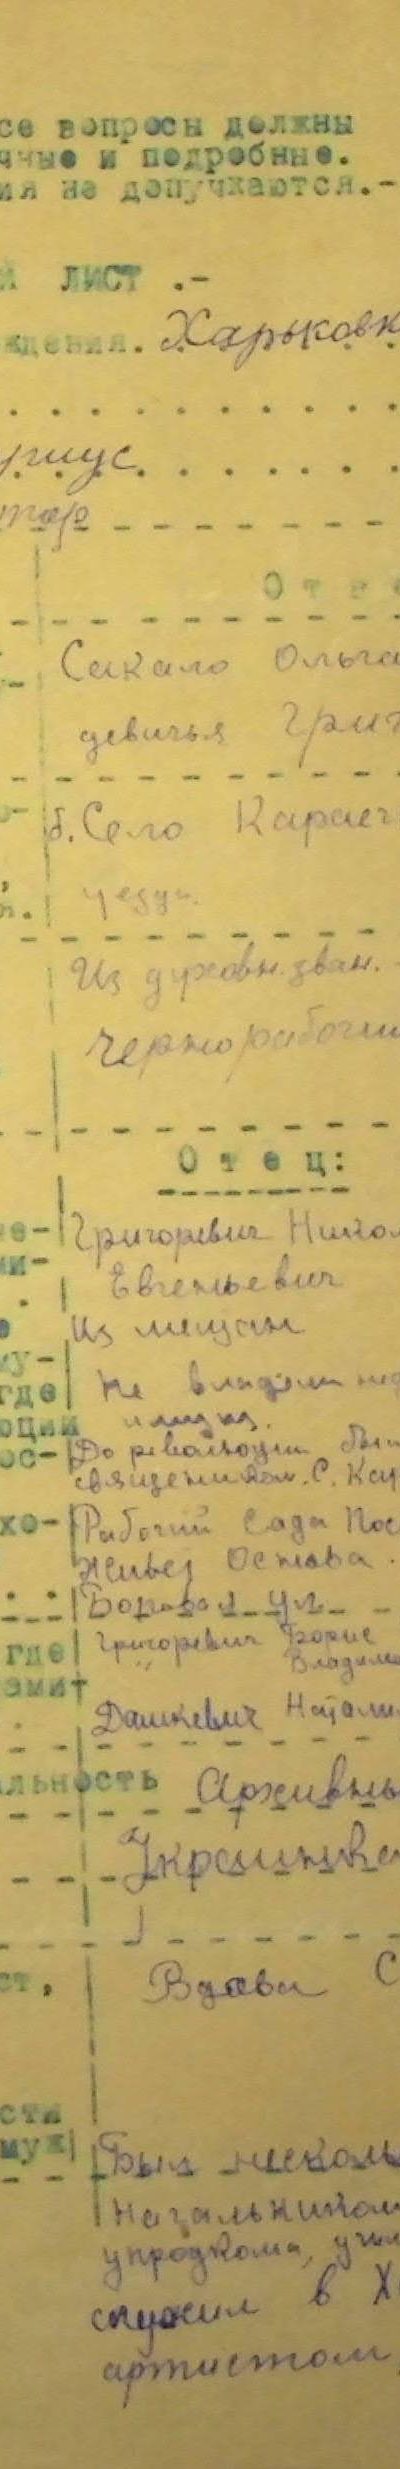 се вопросы должны
чные и подробные.
ия не допучкаются.-
й ЛИСТ .-
ждения. Харьковк
униус
Отве
Сакало Ольга
девичья Григ
б. Село Карач
уезда.
Из духовн. зван.
Чернорабочи
Отец:
не- Григоревич Никол
ми- Евгеньевич
е Из мещан
му-
где Не владели нед
юции
ос- До революции был
священником. С. Ка
хо- Рабочий Сада Пос
Жив
где Григоревич Борис
эмит " Владими
Дашкевич Натали
альность Архивны
Украинка
ст, Вдова С
сти
муж Был несколь
начальником
упродкома, учи
служил в Х
артистом,